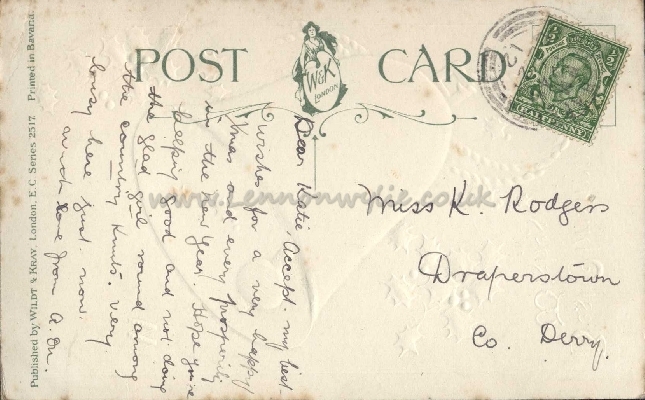 POST CARD
W&K
LONDON
HALFPENNY
Published by WILDT & KRAY, London, E.C Series 2517 Printed in Bavaria.
www.lennonwylie.co.uk
Dear Katie, Accept my best
wishes for a very happy
Xmas and every prosperity
in the new year. Hope you're
keeping good and not doing
the glad girl round among
the country knuts. Very
busy here just now.
with love from A.
Miss K. Rodgers
Draperstown
Co. Derry.